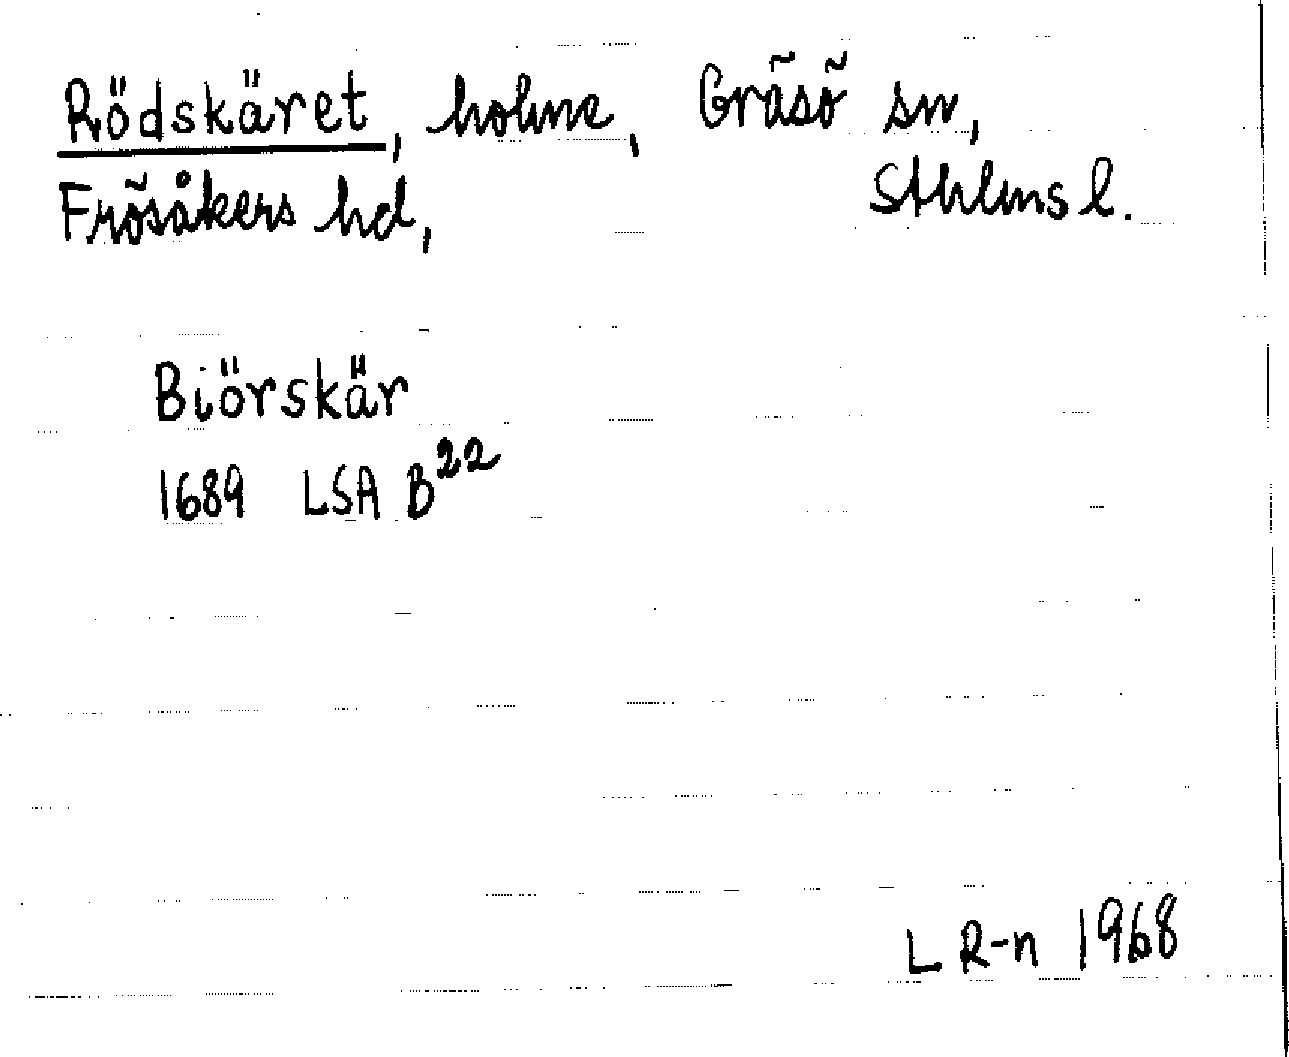 Rödskäret, holme, Gräsö sn,
Frösåkers hd, Sthlms l.
Biörskär
1689 LSA B22
L R-n 1968